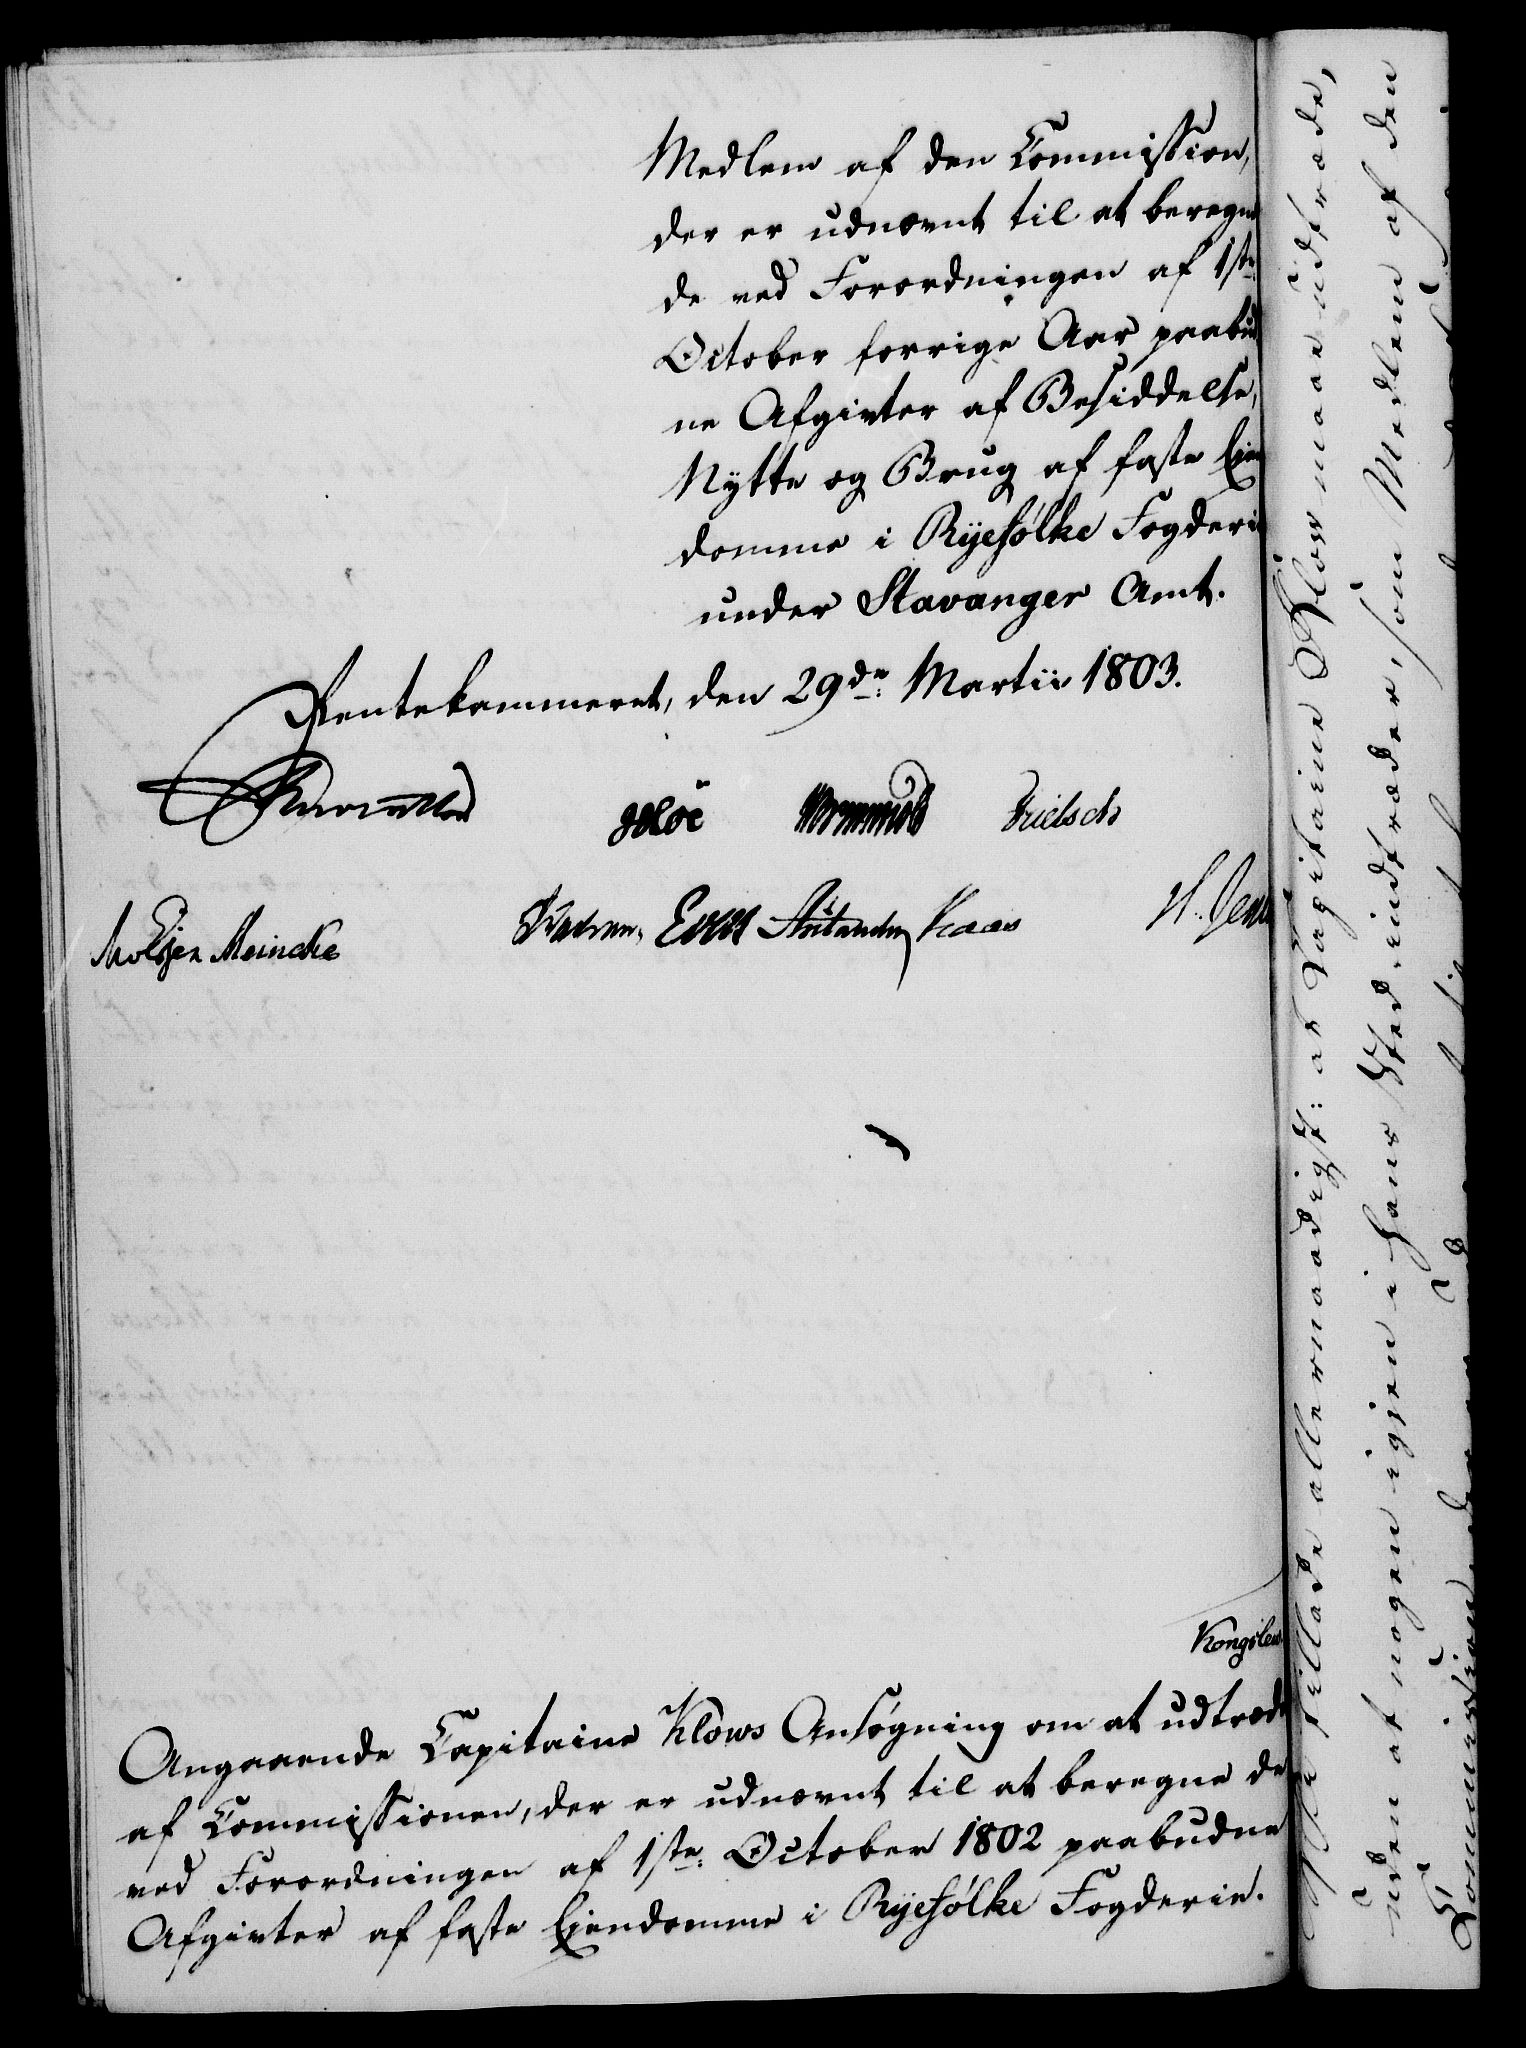 Medlem af den Commission,
der er udnævnt til at beregne
de ved Forordningen af 1ste
October forrige Aar paabud
ne Afgivter af Besiddelse,
Nytte og Brug af faste Eien
domme i Ryefølke Fogderie
under Stavanger Amt.
Rentekammeret, den 29de Martii 1803.
Høe Frietsch
Meincke Kaas H. Jens
Kongelev
Angaaende Capitaine Klows Ansøgning om at udtræde
af Commissionen, der er udnævnt til at beregne de
ved Forordningen af 1ste October 1802 paabudne
Afgivter af faste Eiendomme i Ryefølke Fogderie.
Vi tillade allernaadigst: at Capitaine Klow maae udtræde,
uden at nogen igjen i hans Sted indtræder, som Medlem af den
Commission,